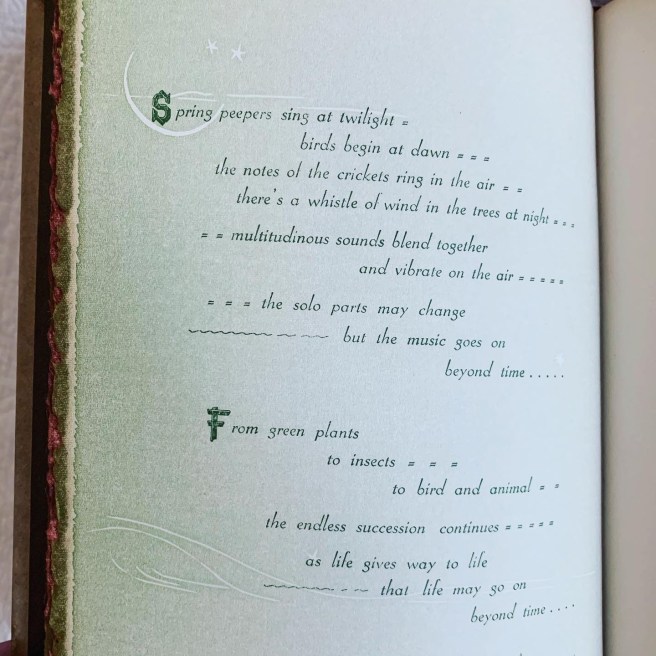 Spring peepers sing at twilight =
birds begin at dawn = = =
the notes of the crickets ring in the air = =
there's a whistle of wind in the trees at night = = =
= = multitudinous sounds blend together
and vibrate on the air = = = = =
= = = the solo parts may change
but the music goes on
beyond time.....
From green plants
to insects = = =
to bird and animal = =
the endless succession continues = = = = =
as life gives way to life
that life may go on
beyond time....